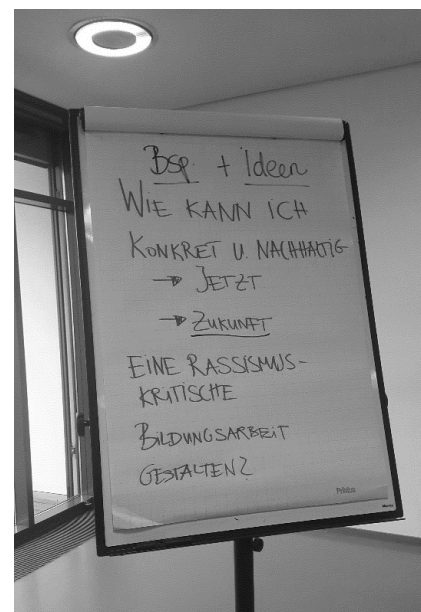 Bsp. + Ideen
WIE KANN ICH
KONKRET U. NACHHALTIG
→ JETZT
→ ZUKUNFT
EINE RASSISMUS-
KRITISCHE
BILDUNGSARBEIT
GESTALTEN?